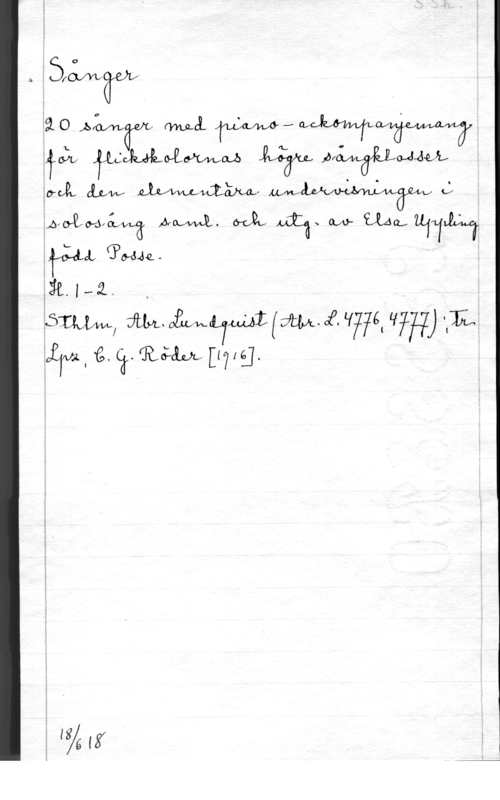 Sånger
20 sånger med piano-ackompanjemang
för flickskolornas högre sångklasser
och den elementära undervisningen i
solosång saml. och utg. av Elsa Uppling
född Posse.
H. 1-2.
Sthlm, Abr. Lundquist (Abr. L. 4776, 4777); Tr.
Lpz, C. G. Röder [1916].
18/6 18